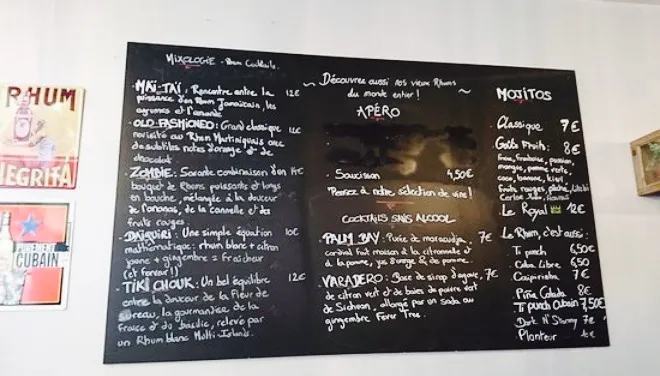 RHUM
NEGRITA
PUREMENT
CUBAIN
MIXOLOGIE - Rhum Cocktails
MAÏ-TAÏ : Rencontre entre la 12€
puissance d'un Rhum Jamaïcain, les
agrumes et l'amande
OLD FASHIONED : Grand classique 12€
revisité au Rhum Martiniquais avec
de subtiles notes d'orange et de
chocolat
ZOMBIE : Savante combinaison d'un 14€
bouquet de Rhums puissants et longs
en bouche, mélangée à la douceur
de l'ananas, de la cannelle et des
fruits rouges
DAÏQUIRI : Une simple équation 10€
mathématique : rhum blanc + citron
jaune + gingembre = fraîcheur
(et fureur !)
TIKI CHOUK : Un bel équilibre 12€
entre la douceur de la fleur de
sureau, la gourmandise de la
fraise et du basilic, relevé par
un Rhum blanc Multi-Islands.
~ Découvrez aussi nos vieux Rhums
du monde entier ! ~
APÉRO
Saucisson 4,50€
Pensez à notre sélection de vins !
COCKTAILS SANS ALCOOL
PALM BAY : Purée de maracudja, 7€
cordial fait maison à la citronnelle et
à la pomme, jus d'orange & de pomme.
VARADERO : Base de sirop d'agave, 7€
de citron vert et de baies de poivre vert
de Sichuan, allongé par un soda au
gingembre Fever Tree.
MOJITOS
Classique 7€
Goûts Fruits : 8€
fraise, framboise, passion,
mangue, pomme verte,
coco, banane, kiwi
fruits rouges, pêche, Litchi
Le Royal 12€
Le Rhum, c'est aussi :
Ti punch 6,50€
Cuba Libre 6,50€
Caïpirinha 7€
Piña Colada 8€
Ti punch Cubain 7,50€
Dark N' Stormy 7€
Planteur